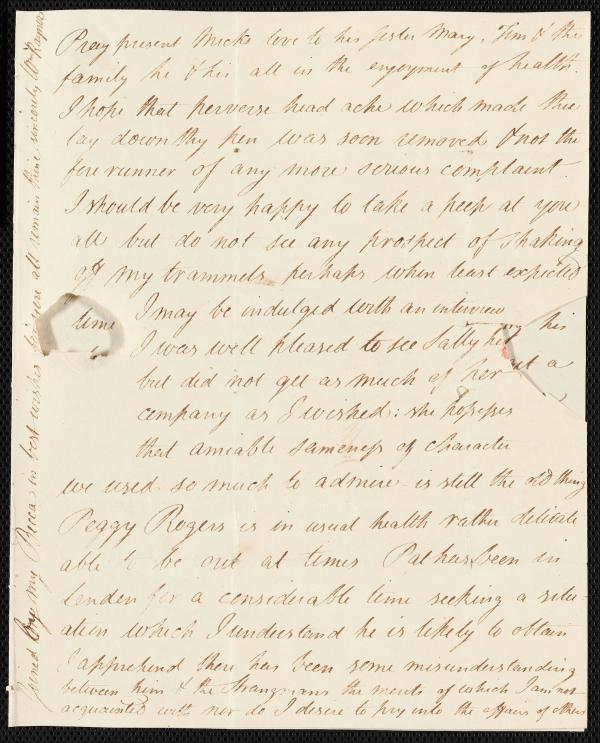 Pray present Micks love to his Sister Mary, Tim & the
family he & his all in the enjoyment of health.
I hope that perverse head ache which made thee
lay down thy pen was soon removed & not the
fore runner of any more serious complaint.
I should be very happy to take a peep at you
all but do not see any prospect of shaking
off my trammels perhaps when least expected
time I may be indulged with an interview
I was well pleased to see Sally here
but did not get as much of her
company as I wished: she possesses
that amiable sameness of character
we used so much to admire - is still the old thing
Peggy Rogers is in usual health rather delicate
able to be out at times Pat has been in
London for a considerable time seeking a situ-
ation which I understand he is likely to obtain
I apprehend there has been some misunderstanding
between him & the Strangmans the merits of which I am not
acquainted with nor do I desire to pry into the affairs of others
Joined by my Becca in best wishes for you all remain thine sincerely